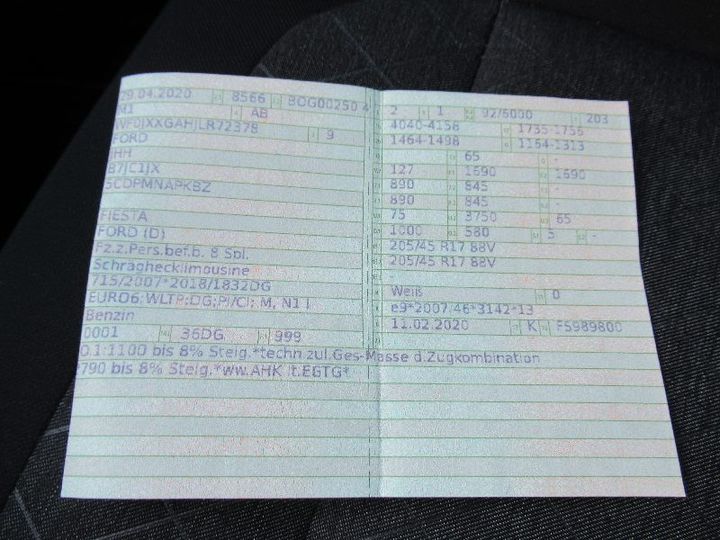 29.04.2020 8566 BOG00250 4
M1 AB
WF0JXXGAHJLR72378 9
FORD
JHH
B7JC1JX
5CDPMNAPKBZ
FIESTA
FORD (D)
Fz.z.Pers.bef.b. 8 Spl.
Schräghecklimousine
715/2007*2018/1832DG
EURO6;WLTP;DG;PI/CI; M, N1 I
Benzin
0001 36DG 999
2 1 92/6000 203
4040-4158 1735-1756
1464-1498 1154-1313
- 65 -
127 1690 1690
890 845 -
890 845 -
75 3750 65
1000 580 5 -
205/45 R17 88V
205/45 R17 88V
-
Weiß 0
e9*2007/46*3142*13
11.02.2020 K FS989800
O.1:1100 bis 8% Steig.*techn.zul.Ges-Masse d.Zugkombination
2790 bis 8% Steig.*ww.AHK lt.EGTG*